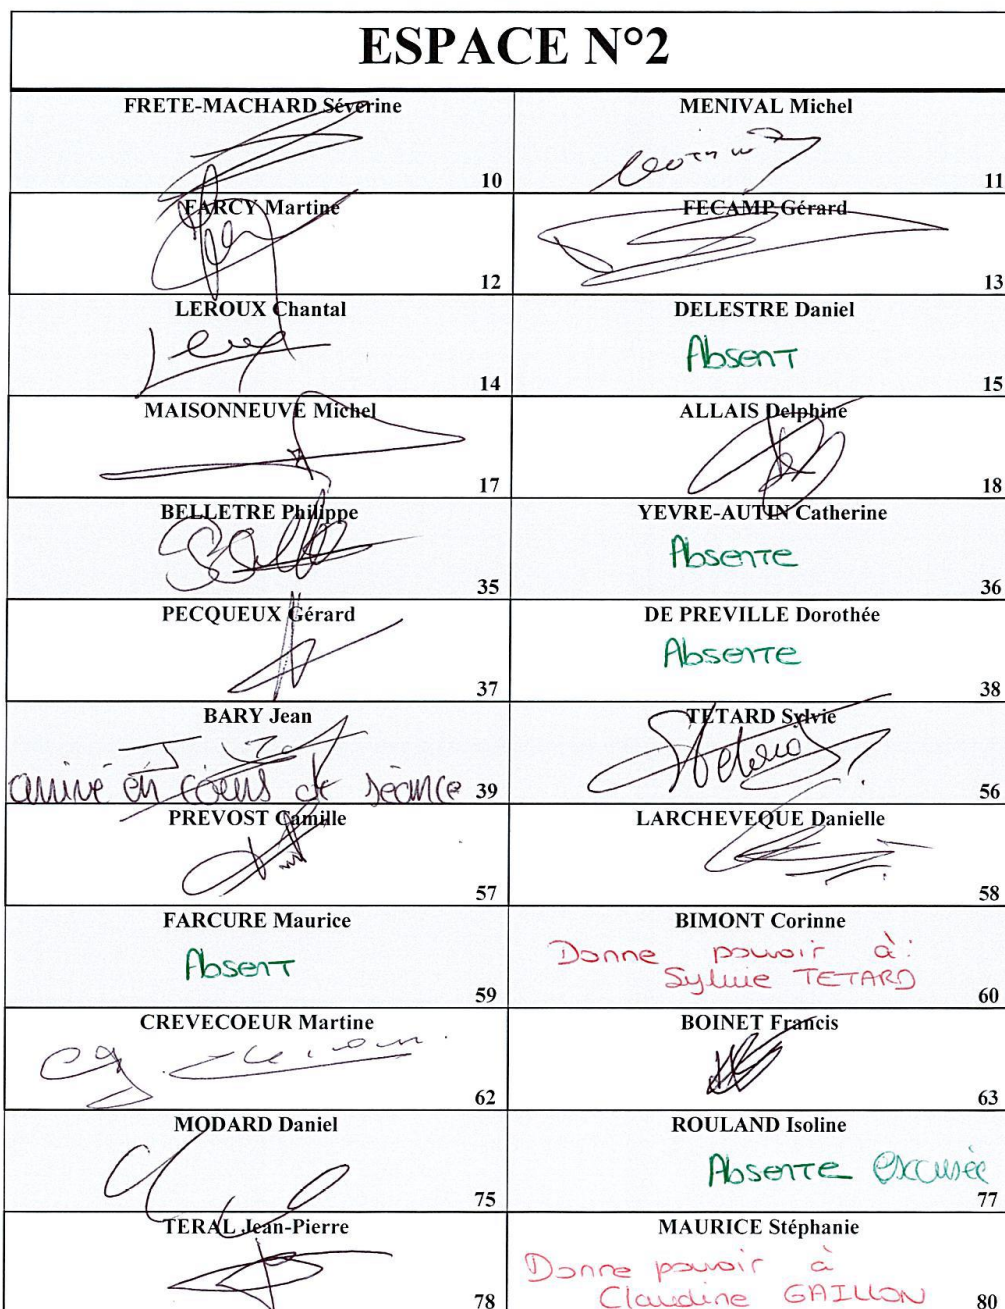 ESPACE N°2
FRETE-MACHARD Séverine
10
MENIVAL Michel
11
FARCY Martine
12
FECAMP Gérard
13
LEROUX Chantal
14
DELESTRE Daniel
Absent
15
MAISONNEUVE Michel
17
ALLAIS Delphine
18
BELLETRE Philippe
35
YEVRE-AUTIN Catherine
Absente
36
PECQUEUX Gérard
37
DE PREVILLE Dorothée
Absente
38
BARY Jean
arrivé en cours de séance 39
TETARD Sylvie
56
PREVOST Camille
57
LARCHEVEQUE Danielle
58
FARCURE Maurice
Absent
59
BIMONT Corinne
Donne pouvoir à :
Sylvie TETARD
60
CREVECOEUR Martine
62
BOINET Francis
63
MODARD Daniel
75
ROULAND Isoline
Absente excusée
77
TERAL Jean-Pierre
78
MAURICE Stéphanie
Donne pouvoir à
Claudine GAILLON 80